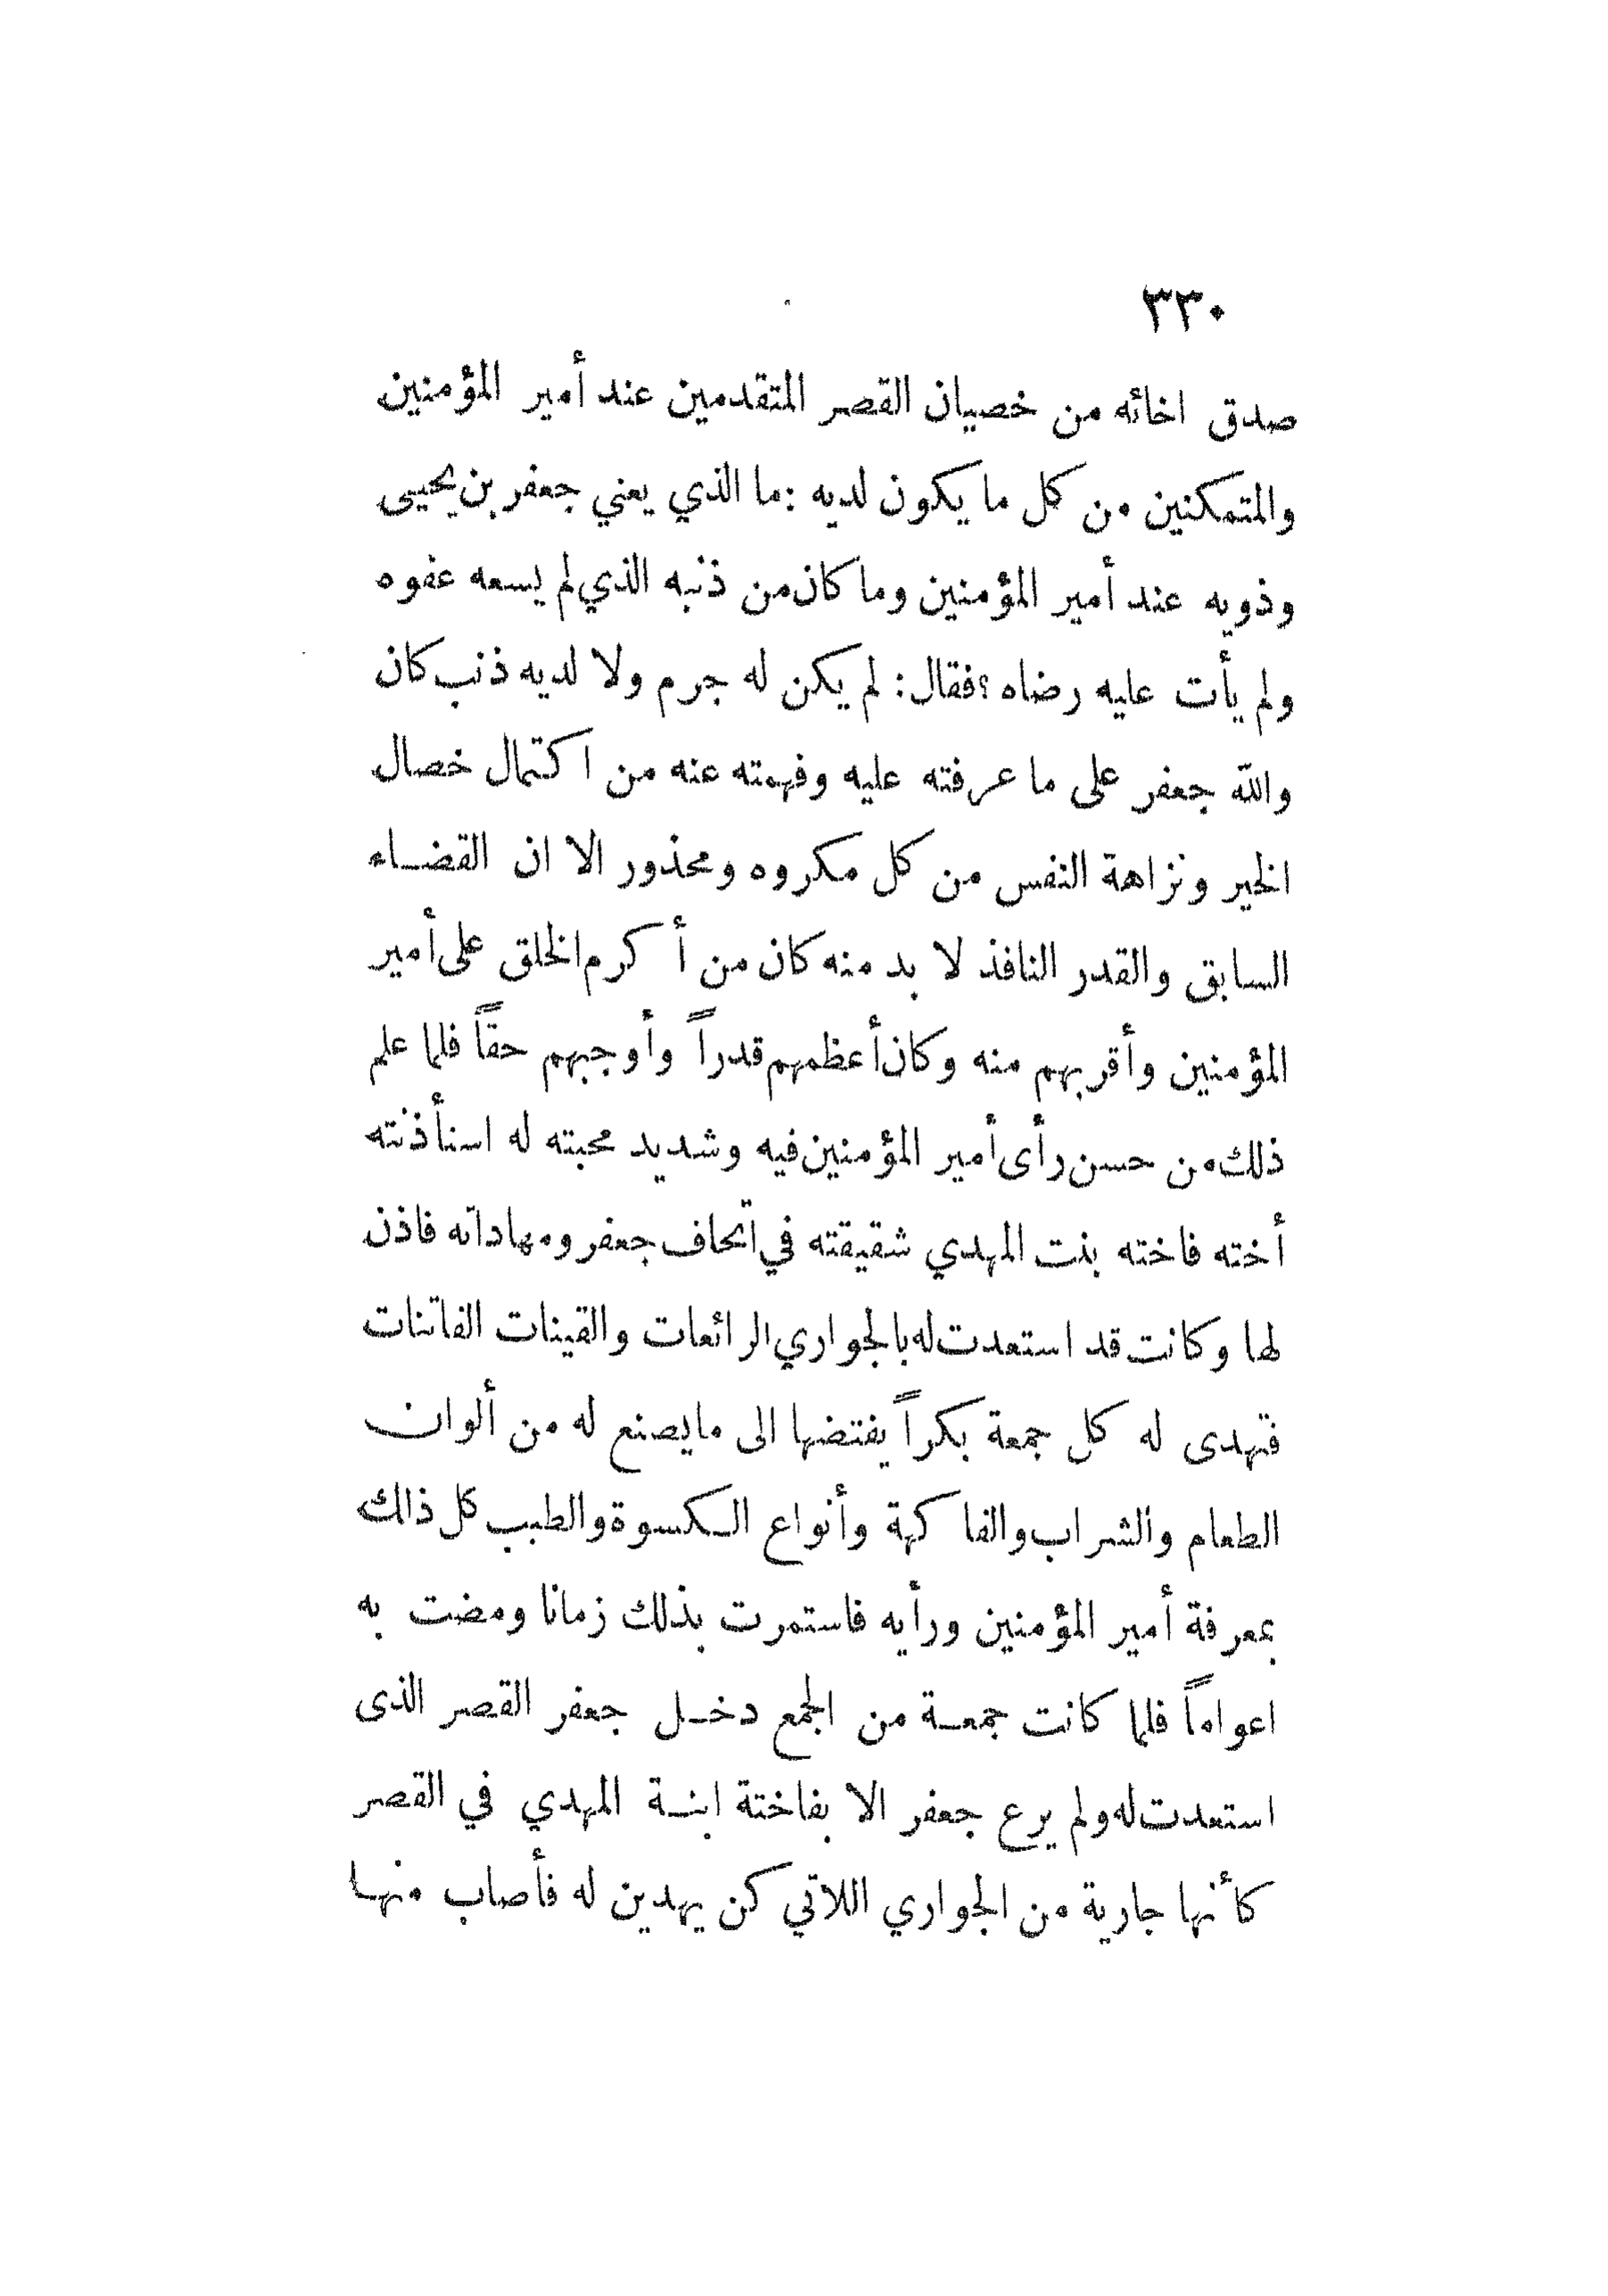 ٣٣٠
صدق اخائه من خصيان القصر المتقدمين عند أمير المؤمنين
والمتمكنين من كل ما يكون لديه : ما الذي يعني جعفر بن يحيى
وذويه عند أمير المؤمنين وما كان من ذنبه الذي لم يسعه عفوه
ولم يأت عليه رضاه ؟ فقال : لم يكن له جرم ولا لديه ذنب كان
والله جعفر على ما عرفته عليه وفهمته عنه من اكتمال خصال
الخير ونزاهة النفس من كل مكروه ومحذور الا ان القضاء
السابق والقدر النافذ لا بد منه كان من أكرم الخلق على أمير
المؤمنين وأقربهم منه وكان أعظمهم قدراً وأوجبهم حقاً فلما علم
ذلك من حسن رأى أمير المؤمنين فيه وشديد محبته له استأذنته
أخته فاخته بنت المهدي شقيقته في اتحاف جعفر ومهاداته فاذن
لها وكانت قد استعدت له بالجواري الرائعات والقينات الفاتنات
فتهدى له كل جمعة بكراً يفتضها الى ما يصنع له من ألوان
الطعام والشراب والفاكهة وأنواع الكسوة والطيب كل ذلك
بمعرفة أمير المؤمنين ورأيه فاستمرت بذلك زمانا ومضت به
اعواماً فلما كانت جمعة من الجمع دخل جعفر القصر الذى
استعدت له ولم يرع جعفر الا بفاختة ابنة المهدي في القصر
كأنها جارية من الجواري اللاتي كن يهدين له فأصاب منها